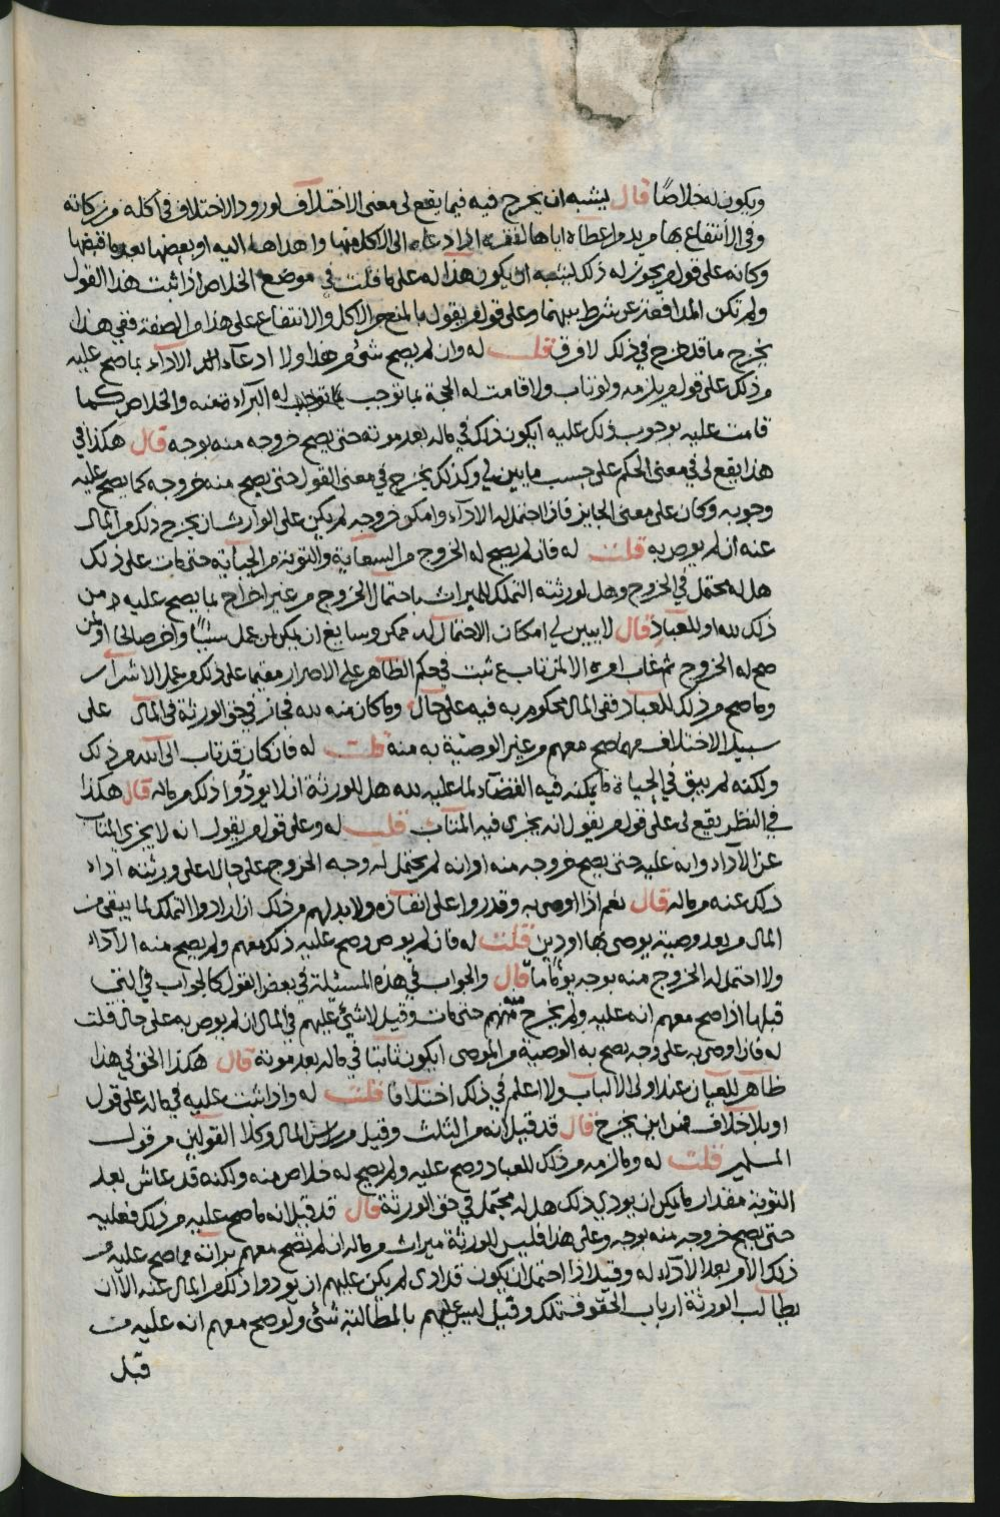 ويكون له خلاصًا قال يشبه ان يخرج فيه فيما يقع لي معنى الاختلاف لورود الاختلاف في أكله من زكاته
وفي الانتفاع بها من يد من اعطاه اياها لفقره اذا دعاه الى الاكل منها واهداها اليه او بعضها بعد ما قبضها
وكانه على قول من يجوز له ذلك يشبه ان يكون هذا له على ما قلت في موضع الخلاص اذا ثبت هذا القول
ولم تكن المدافعة عن شرط بينهما وعلى قول من يقول بالمنع من الاكل والانتفاع على هذا من الصفة ففي هذا
يخرج ما قد طرح في ذلك لا فرق قلت له وان لم يصح شئ من هذا ولا ادعاء الاداء بما صح عليه
من ذلك على قول من يلزمه ولو تاب ولا قامت له الحجة بما توجب له البرآءة منه والخلاص كما
قامت عليه بوجوب ذلك عليه ايكون ذلك في ماله بعد موته حتى يصح خروجه منه بوجه قال هكذا في
هذا يقع لي في معنى الحكم على حسب ما يبين لي وكذلك يخرج في معنى القول حتى يصح منه خروجه كما يصح عليه
وجوبه وكان على معنى الجايز فاذا احتمل له الادآء وامكن خروجه لم يكن على الوارث ان يخرج ذلك من المال
عنه ان لم يوص به قلت له فان لم يصح له الخروج من السعاية والتوبة من الجباية حتى مات على ذلك
هل له محتمل في الخروج وهل لورثته التملك للميراث باحتمال الخروج من غير اخراج لما يصح عليه من
ذلك لله او للعباد قال لا يبين لي امكان الاحتمال له ممكن وسايغ ان يكن لمن عمل سيئًا وآخر صالحا او لمن
صح له الخروج ثم غاب امره الا لمن تاب ثبت في حكم الظاهر على الاصرار مقيما على ذلك من عمل الاشرار
وما صح من ذلك للعباد ففي المال محكوم به فيه على حال وما كان منه لله فجاز في حق الورثة في المال على
سبيل الاختلاف مهما صح معهم من غير الوصية به منه قلت له فان كان قد تاب الى الله من ذلك
ولكنه لم يبق في الحياة ما يمكنه فيه القضآء لما عليه لله هل للورثة ان لا يودوا ذلك من ماله قال هكذا
في النظر يقع لي على قول من يقول انه يجزى فيه المتاب قلت له وعلى قول من يقول انه لا يجزى المتاب
عن الاداء وانه عليه حتى يصح خروجه منه او انه لم يحتمل له وجه الخروج على حال اعلى ورثته اداء
ذلك عنه من ماله قال نعم اذا اوصى به وقدروا على انفاذه ولا بد لهم من ذلك ان ارادوا التملك لما يبقى من
المال من بعد وصية يوصي بها او دين قلت له فان لم يوص وصح عليه ذلك معهم ولم يصح منه الادآء
ولا احتمل له الخروج منه بوجه يومًا ما قال والجواب في هذه المسئلة في بعض القول كالجواب في التي
قبلها اذا صح معهم انه عليه ولم يخرج منه حتى مات وقيل لا شئ عليهم في المال ان لم يوص به على حال قلت
له فاذا اوصى به على وجه يصح به الوصية من الموصى ايكون ثابتا في ماله بعد موته قال هكذا الحق في هذا
ظاهر للعيان عند اولى الالباب ولا اعلم في ذلك اختلافا قلت له واذا ثبت عليه في ماله على قول
او بلا خلاف فمن اين يخرج قال قد قيل انه من الثلث وقيل من راس المال وكلا القولين من قول
المسلمين قلت له وما لزمه من ذلك للعباد وصح عليه ولم يصح له خلاص منه ولكنه قد عاش بعد
التوبة مقدار ما يمكن ان يودي ذلك هل له محتمل في حق الورثة قال قد قيل انه ما صح عليه من ذلك فعليه
حتى يصح خروجه منه بوجه وعلى هذا فليس للورثة ميراث من ماله ان لم تصح معهم برائته مما صح عليه من
ذلك الا من بعد الادآء له وقيل اذا احتمل ان يكون قد ادى لم يكن عليهم ان يودوا ذلك من المال عنه الا ان
يطالب الورثة ارباب الحقوق تلك وقيل ليس عليهم بالمطالبة شئ ولو صح معهم انه عليه من
قبل